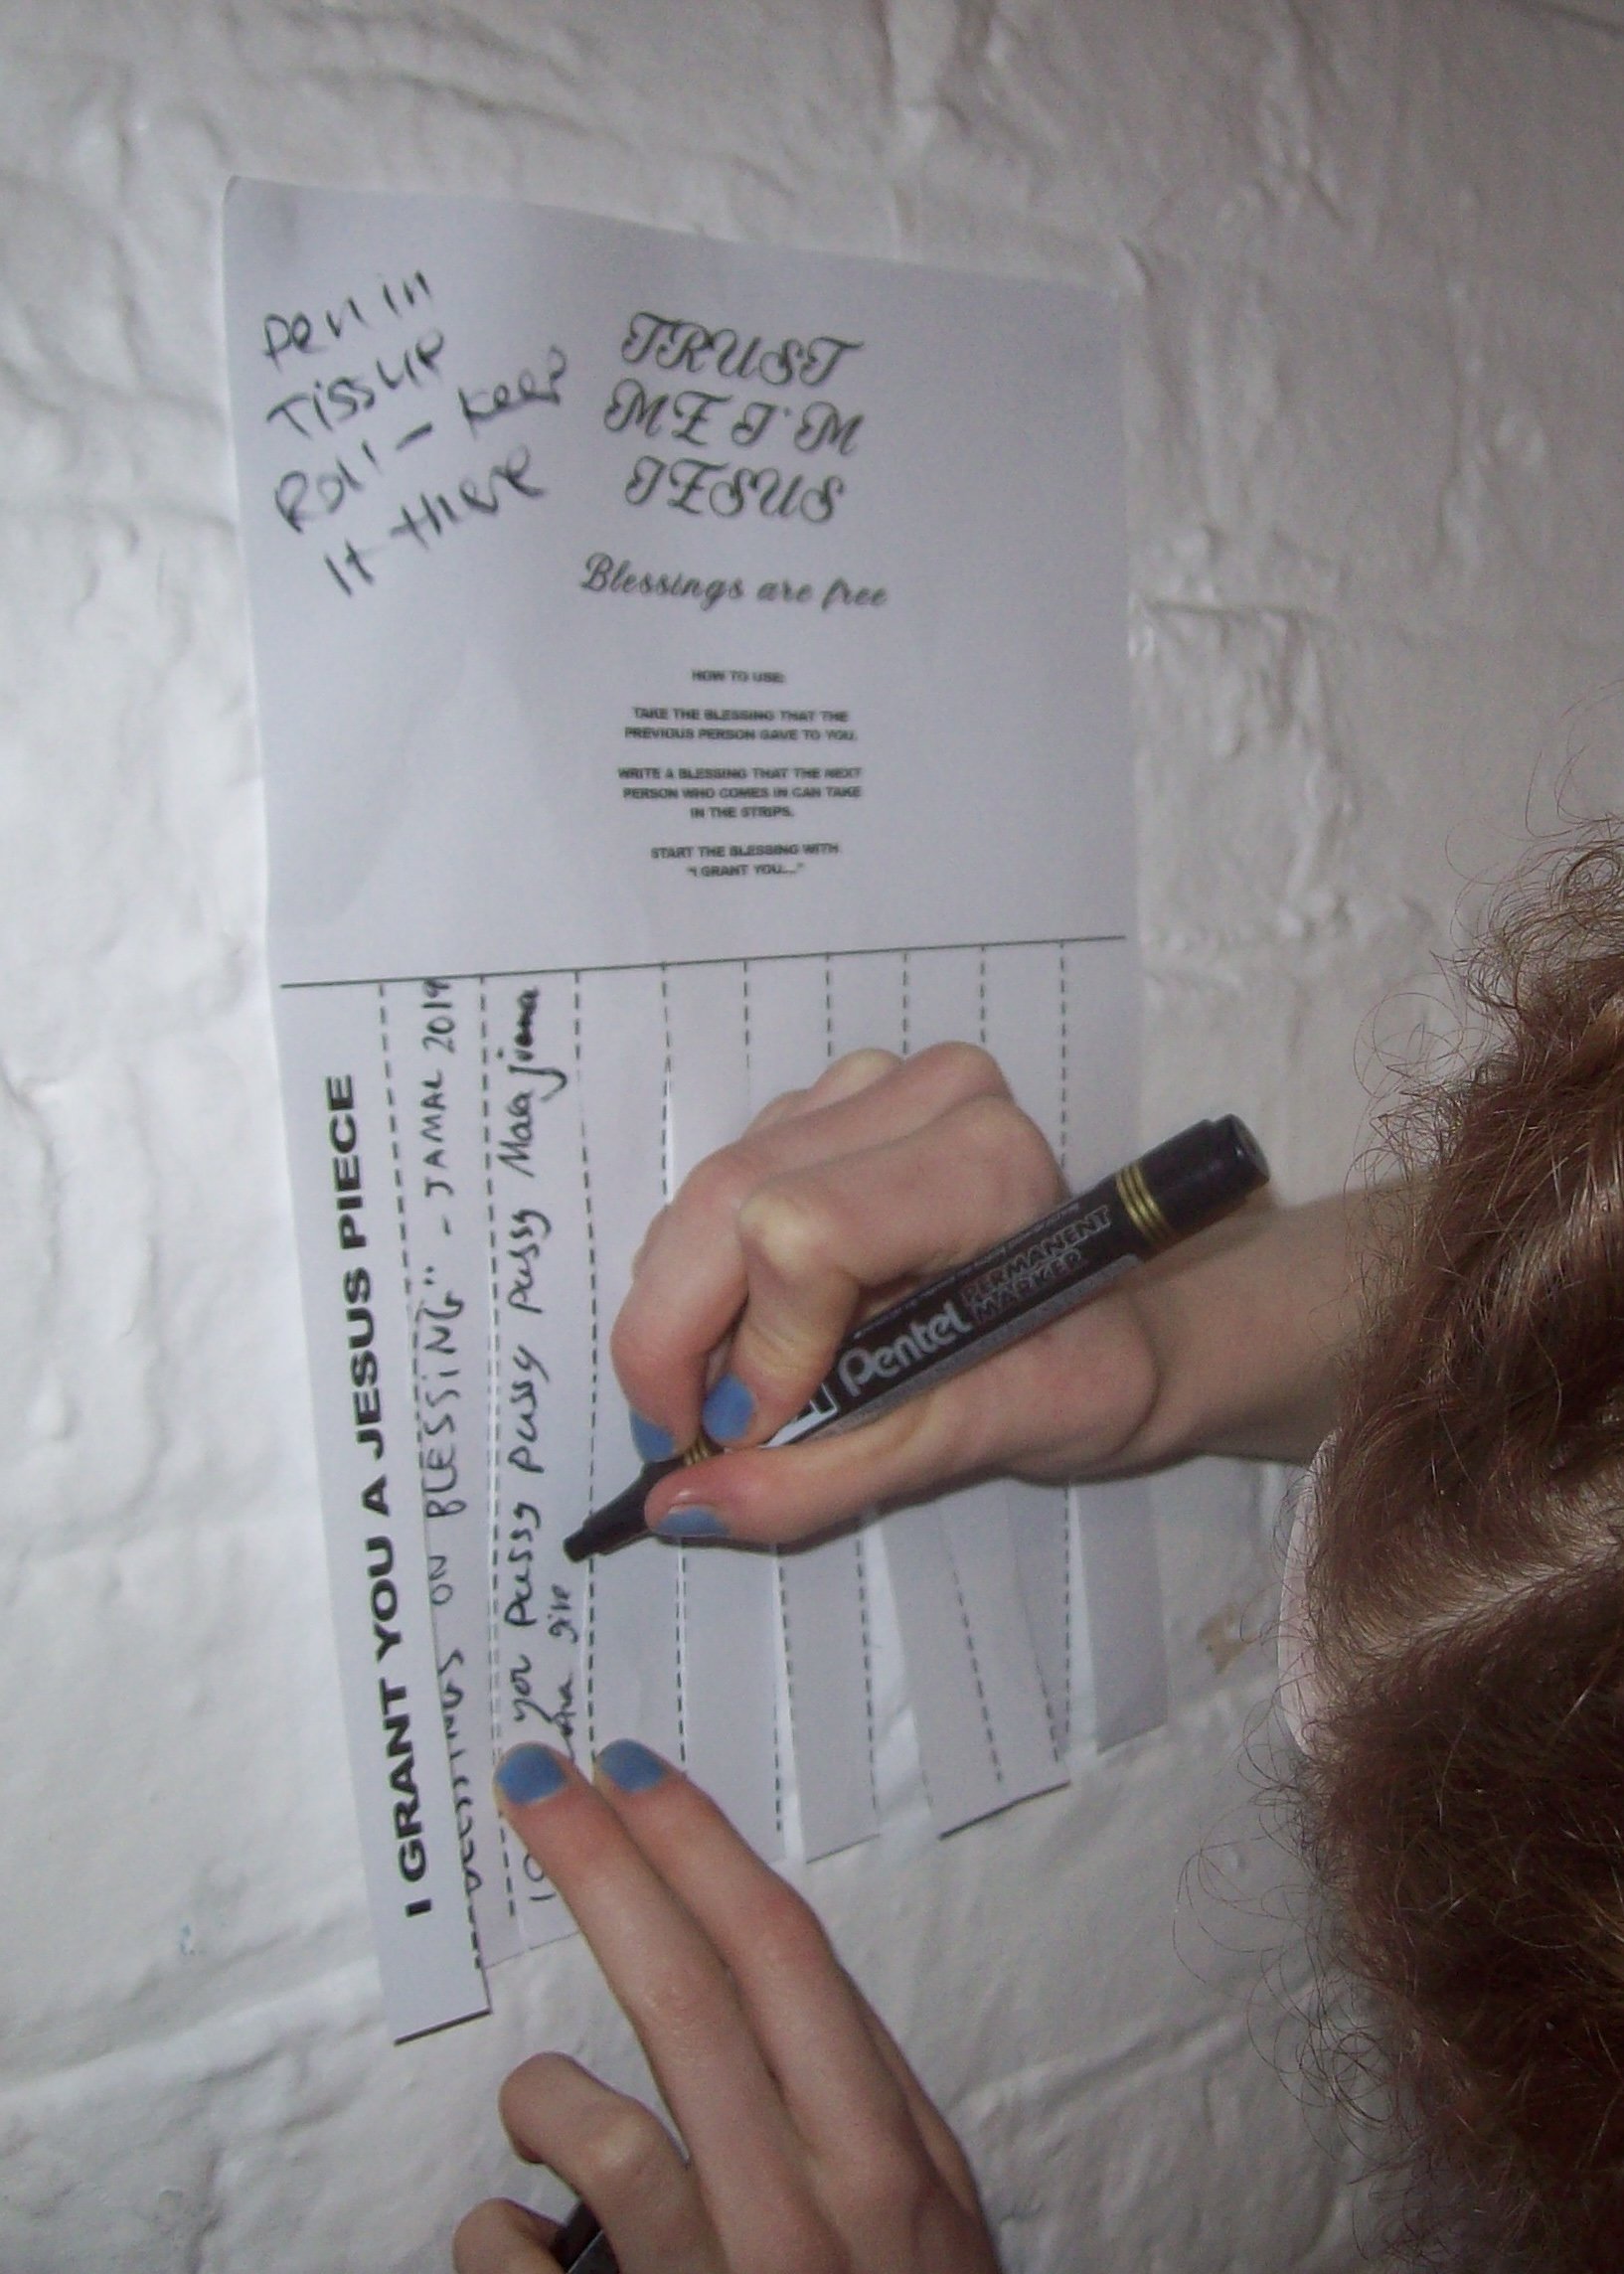 Pen in
Tissue
Roll - keep
it there
TRUST
ME I'M
JESUS
Blessings are free
HOW TO USE:
TAKE THE BLESSING THAT THE
PREVIOUS PERSON GAVE TO YOU.
WRITE A BLESSING THAT THE NEXT
PERSON WHO COMES IN CAN TAKE
IN THE STRIPS.
START THE BLESSING WITH
"I GRANT YOU..."
I GRANT YOU A JESUS PIECE
BLESSINGS ON BLESSING" - JAMAL 2019
you pussy pussy pussy pussy pussy
give
Pentel
PERMANENT
MARKER